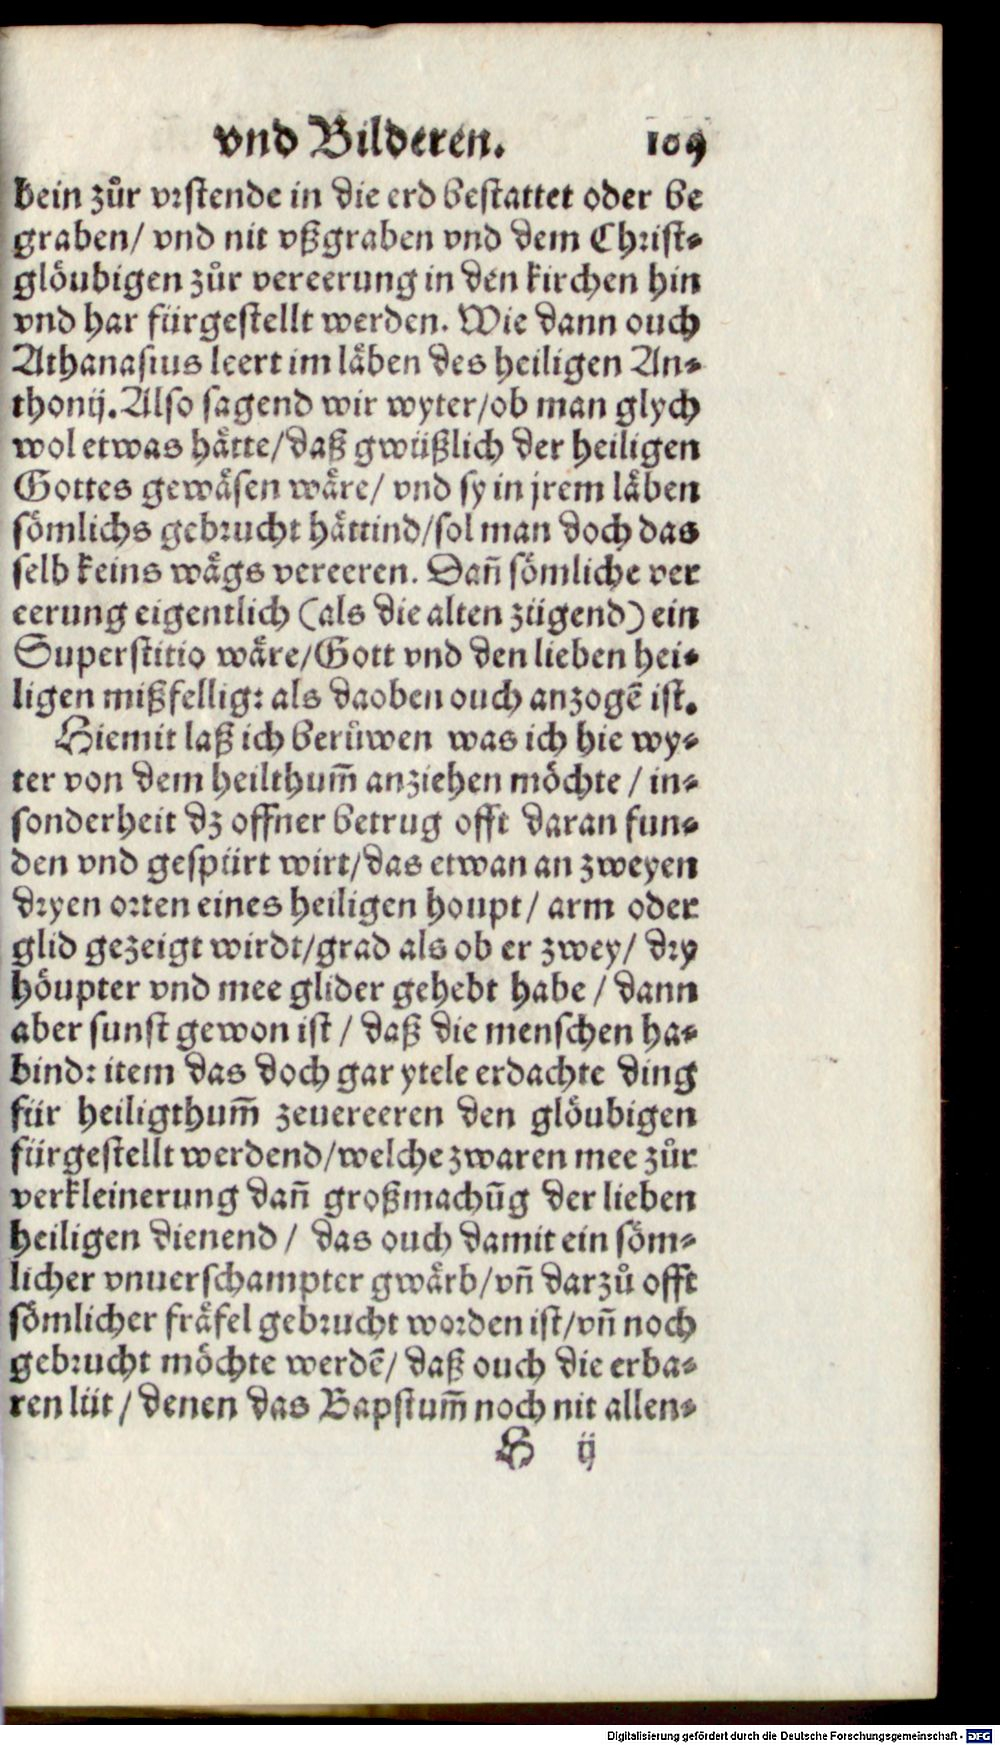 vnd Bilderen. 109
bein zůr vrstende in die erd bestattet oder be
graben/ vnd nit vßgraben vnd dem Christ⸗
glöubigen zůr vereerung in den kirchen hin
vnd har fürgestellt werden. Wie dann ouch
Athanasius leert im läben des heiligen An⸗
thonij. Also sagend wir wyter/ob man glych
wol etwas hätte/daß gwüßlich der heiligen
Gottes gewäsen wäre/ vnd sy in jrem läben
sömlichs gebrucht hättind/sol man doch das
selb keins wägs vereeren. Dañ sömliche ver
eerung eigentlich (als die alten zügend) ein
Superstitio wäre/Gott vnd den lieben hei⸗
ligen mißfellig: als daoben ouch anzogē ist.
Hiemit laß ich berůwen was ich hie wy⸗
ter von dem heilthum̃ anziehen möchte / in⸗
sonderheit dz offner betrug offt daran fun⸗
den vnd gespürt wirt/das etwan an zweyen
dryen orten eines heiligen houpt/ arm oder
glid gezeigt wirdt/grad als ob er zwey/ dry
höupter vnd mee glider gehebt habe / dann
aber sunst gewon ist / daß die menschen ha⸗
bind: item das doch gar ytele erdachte ding
für heiligthum̃ zeuereeren den glöubigen
fürgestellt werdend/welche zwaren mee zůr
verkleinerung dañ großmachūg der lieben
heiligen dienend / das ouch damit ein söm⸗
licher vnuerschampter gwärb/vñ darzů offt
sömlicher fräfel gebrucht worden ist/vñ noch
gebrucht möchte werdē/ daß ouch die erba⸗
ren lüt / denen das Bapstum̃ noch nit allen⸗
H ij
Digitalisierung gefördert durch die Deutsche Forschungsgemeinschaft - DFG